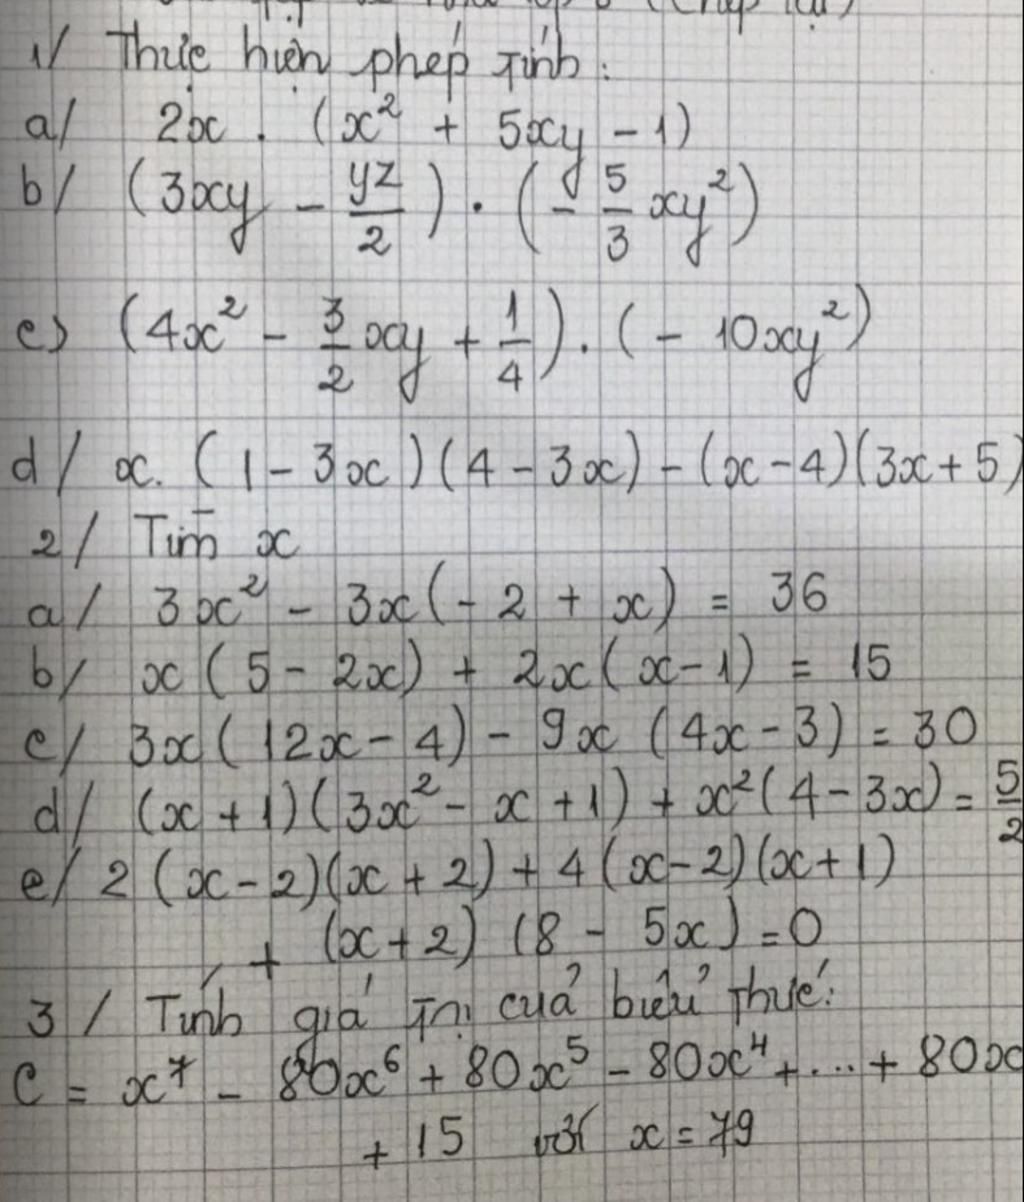 1/ Thực hiện phép tính:
a/ 2x . (x² + 5xy - 1)
b/ (3xy - yz/2) . (-5/3 xy²)
c) (4x² - 3/2 xy + 1/4) . (- 10xy²)
d/ x. (1 - 3x)(4 - 3x) - (x - 4)(3x + 5)
2/ Tìm x
a/ 3x² - 3x(- 2 + x) = 36
b/ x (5 - 2x) + 2x(x - 1) = 15
c/ 3x(12x - 4) - 9x (4x - 3) = 30
d/ (x + 1)(3x² - x + 1) + x²(4 - 3x) = 5/2
e/ 2 (x - 2)(x + 2) + 4(x - 2)(x + 1)
+ (x + 2) (8 - 5x) = 0
3 / Tính giá trị của biểu thức:
C = x⁷ - 80x⁶ + 80x⁵ - 80x⁴ + ... + 80x
+ 15 với x = 79